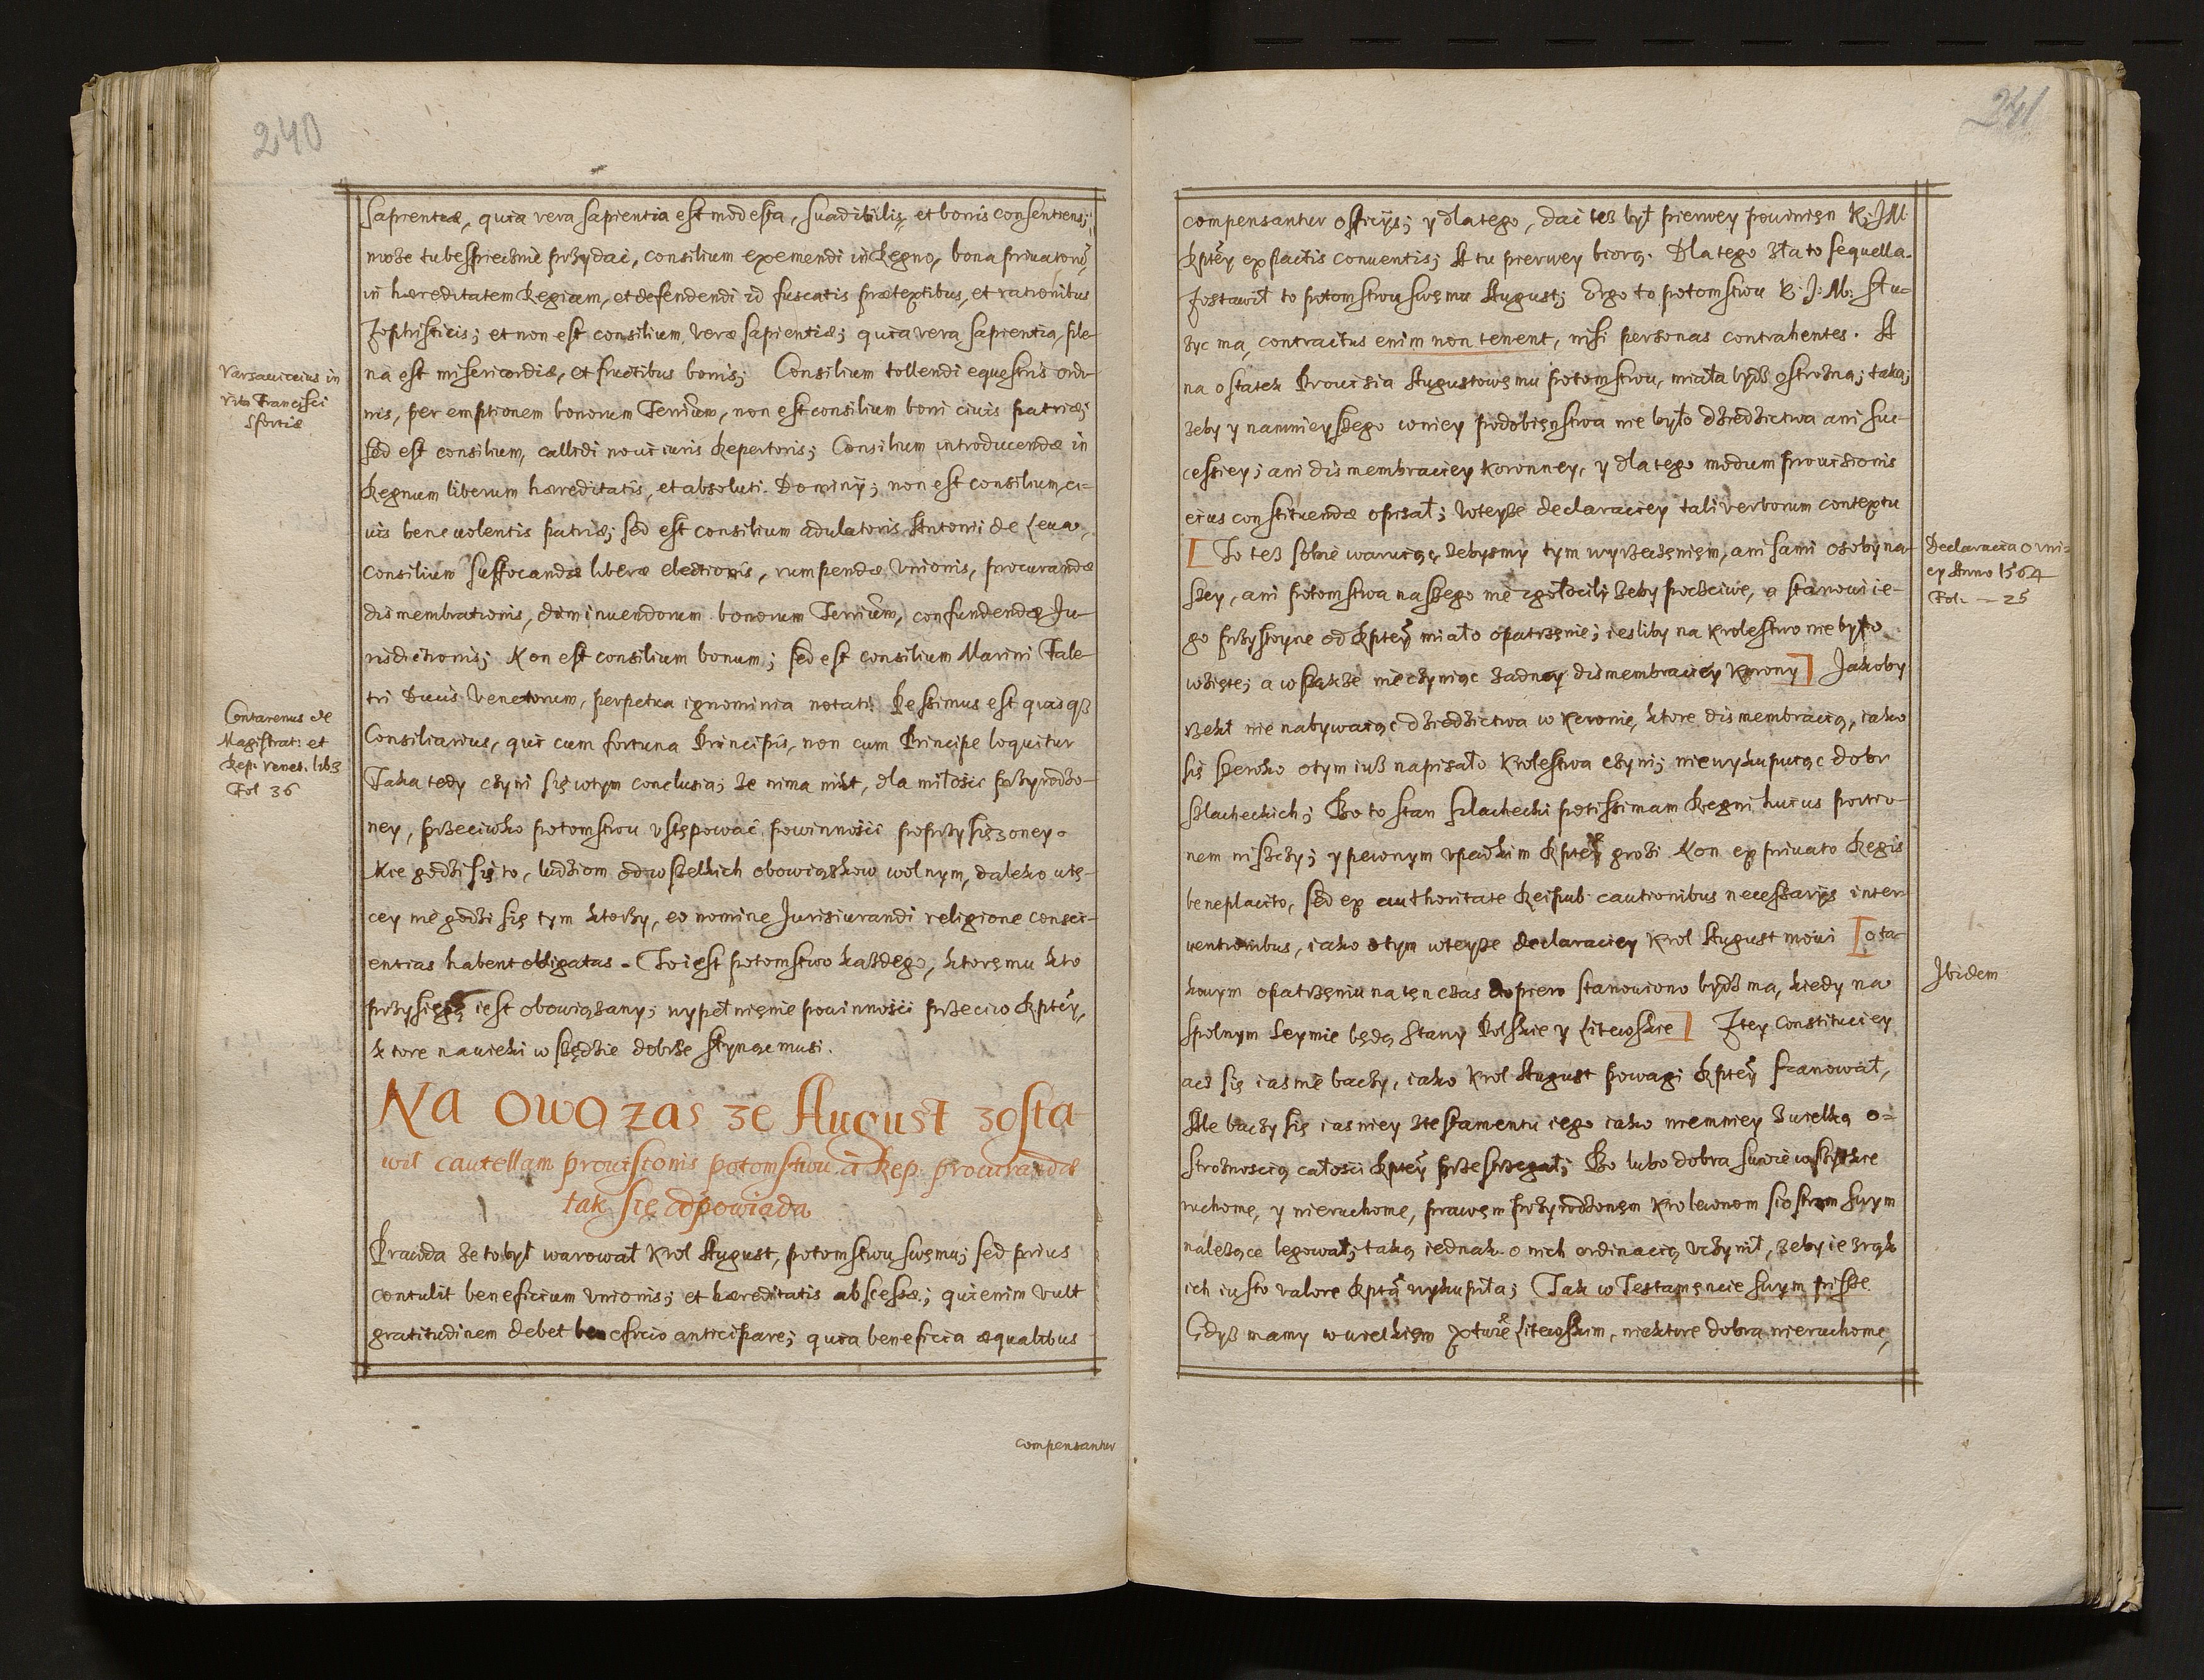 240
sapientiæ, quia vera sapientia est modesta, suadibilis, et bonis consentiens;
może tu bespiecznie przydać, consilium eximendi in Regno, bona privatorũ,
in hæreditatem Regiam, et defendendi id fuscatis prætextibus, et rationibus
Zophisticis; et non est consilium, veræ sapientiæ; quia vera sapientia, ple-
na est misericordiæ, et fructibus bonis; Consilium tollendi equestris ordi-
nis, per emptionem bonorum Terrium, non est consilium boni civis patriæ;
sed est consilium, callidi novi iuris Repertoris; Consilium introducendæ in
Regnum liberum hæreditatis, et absoluti Dominij; non est consilium, ci-
vis benevolentis patriæ; sed est consilium adulatoris Antonii de Leua,
consilium suffocandæ liberæ electionis, rumpendæ Unionis, procurandæ
dismembrationis, diminuendorum bonorum Terrium, confundendæ Ju-
risdictionis; Non est consilium bonum; sed est consilium Marini Fale-
tri Ducis Venetorum, perpetua ignominia notati. Pessimus est quisqȝ
Consiliarius, qui cum fortuna Principis, non cum Principe loquitur
Taka tedy czyni się wtym conclusia; że nima nikt, dla miłości przyrodzo-
ney, przeciwko potomstwu ustępować powinności poprzysiężoney.
Nie godzi się to, ludziom odwszelkich obowiązkow wolnym, daleko wię-
cey nie godzi się tym ktorzy, eo nomine Jurisiurandi religione consci-
entias habent obligatas. To iest potomstwo każdego, ktoremu kto
przysięgą iest obowiązany; wypełnienie powinności przeciw Rptey,
ktore nawieki wszędzie dobrze słynąc musi.
Na owo zas że August zosta-
wił cautellam provisionis potomstwu à Rep: procurandæ
tak się odpowiada
Prawda że to był warował Krol August, potomstwu swemu; sed prius
contulit beneficium Unionis; et hæreditatis abscessæ; qui enim vult
gratitudinem debet beneficio anticipare; quia beneficia æqualibus
compensantur
Varsaviceius in
Vita Francisci
Sfortiæ
Contarenus de
Magistrat: et
Rep: Venet. lib 3
Fol 36
241
compensantur officijs; y dlatego, dać też był pierwey powinien K: J M
Rptey ex pactis conventis; A tu pierwey biorą. Dla tego zła to sequella.
Zostawił to potomstwu swemu August; Ergo to potomstwu K: J: M: słu-
życ ma, contractus enim non tenent, nisi personas contrahentes. A
na ostatek Provisia Augustowemu potomstwu, miała bydź ostrożna; taka;
żeby y namnieyszego wniey podobieństwa nie było dziedzictwa ani suc-
cessiey; ani dismembraciey Koronney, y dlatego modum provisionis
eius constituendæ opisał; wteyże declaraciey tali verborum contextu
[To też sobie waruiąc, żebysmy tym wyrzeczeniem, ani sami osoby na-
szey, ani potomstwa naszego nie zgołocili, żeby poczciwe, a stanowi ie-
go przystoyne od Rptey miało opatrzenie; iesliby na Krolestwo nie było
wzięte; a wszakże nie czyniąc żadney dismembraciey Korony] Jakoby
rzekł nie nabywaiąc dziedzictwa w Koronie, ktore dismembracią, iako
się szeroko otym iuż napisało Krolestwa czyni; niewykupuiąc dobr
szlacheckich; Bo to stan szlachecki potissimam Regni huius portio-
nem niszczy; y pewnym upadkiem Rptey grozi. Non ex privato Regis
beneplacito, sed ex authoritate Reipub: cautionibus necessarijs inter-
ventionibus, iako otym wteyże declaraciey Krol August mowi [o ta-
kowym opatrzeniu na ten czas dopiero stanowiono bydź ma, kiedy na
spolnym seymie będą stany Polskie y Litewskie] Ztey Constituciey
acz się iasnie baczy, iako Krol August powagi Rptey szanował,
Ale baczy się iasniey ztestamentu iego iako niemniey z wielką o-
strożnoscią całosci Rptey przestrzegał; Bo lubo dobra swoie wszytkie
ruchome, y nieruchome, prawem przyrodzonem Krolewnom siostrom swym
należące legował; taką iednak o nich ordinacią uczynił, żeby ie z rąk
ich iusto valore Rptã wykupiła; Tak w Testamencie swym pisze
Gdyż mamy w wielkiem Xtwie Litewskim, niektore dobra nieruchome,
Declaracia o Uni-
ey Anno 1564
Fol. — 25
Ibidem